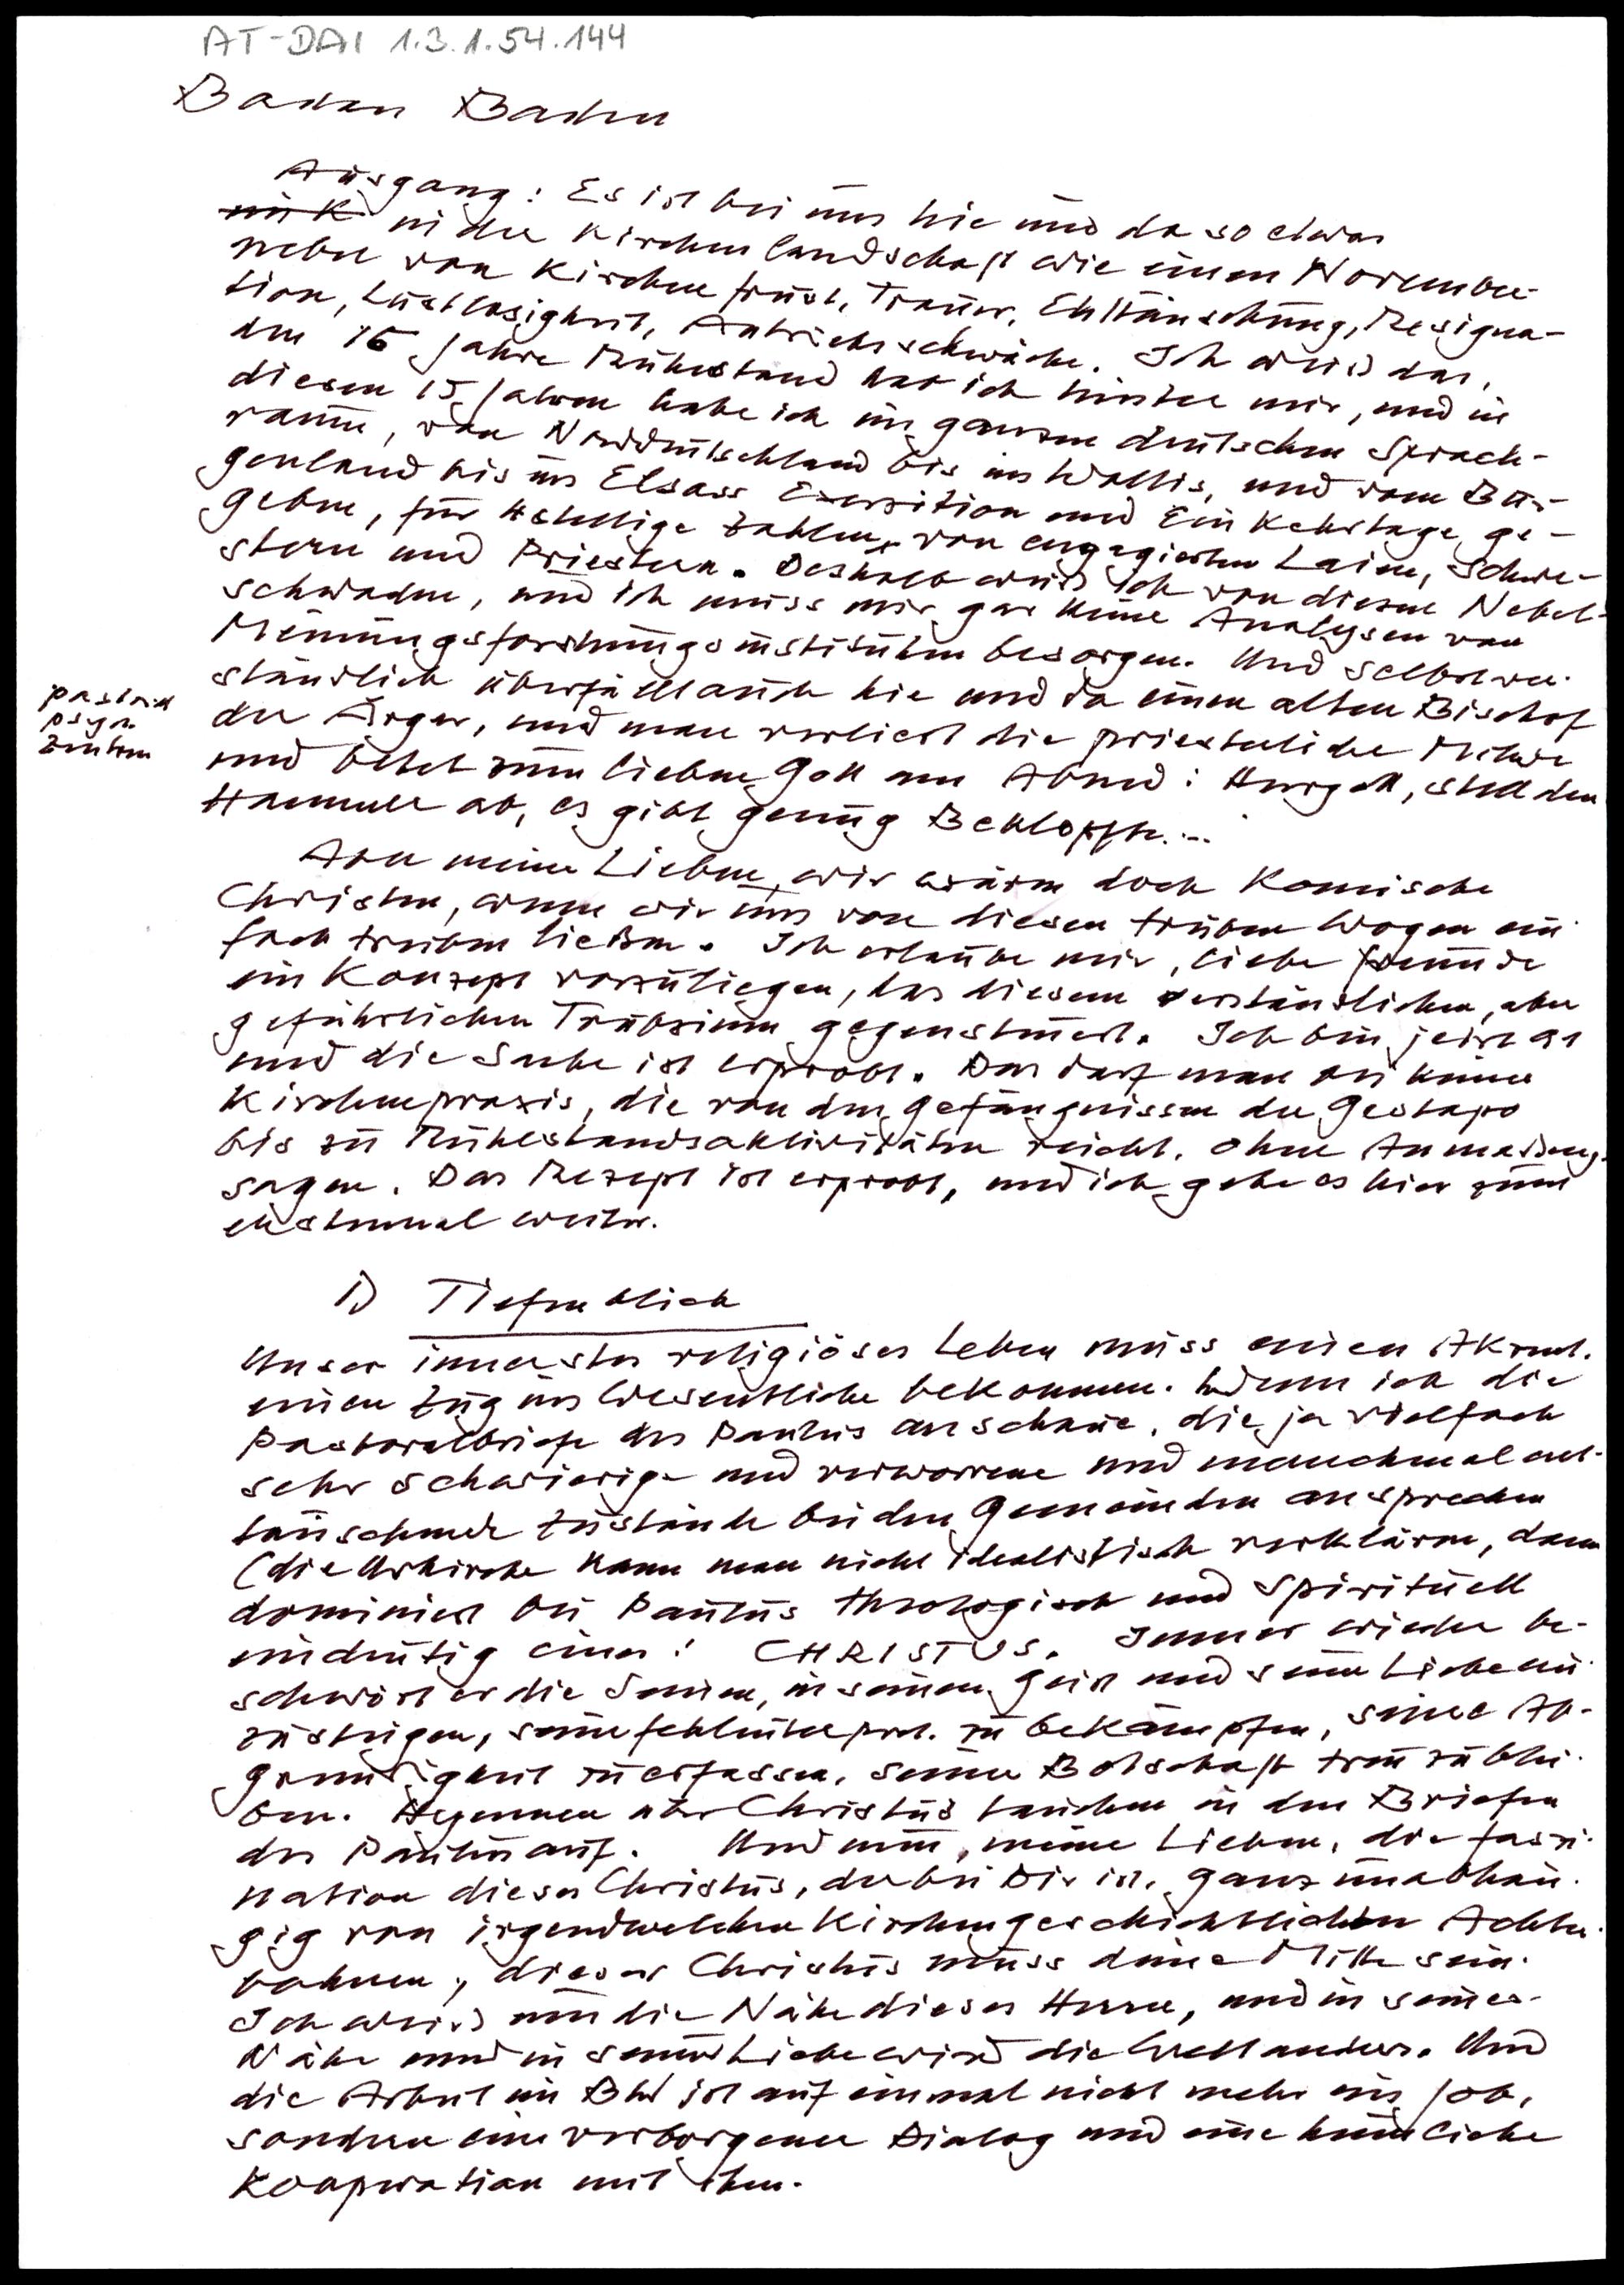 AT-DAI 1.3.1.54.144
Baden Baden
Ausgang: Es ist bei uns hie und da so etwas
in der Kirchenlandschaft wie einen November-
nebel von Kirchenfrust, Trauer, Enttäuschung, Resigna-
tion, Lustlosigkeit, Antriebsschwäche. Ich weiß das,
denn 15 Jahre Ruhestand hab ich hinter mir, und in
diesen 15 Jahren habe ich im ganzen deutschen Sprach-
raum, von Norddeutschland bis ins Wallis, und vom Bur-
genland bis ins Elsass Exerzitien und Einkehrtage ge-
geben, für 4stellige Zahlen von engagierten Laien, Schwe-
stern und Priestern. Deshalb weiß ich von diesen Nebel-
schwaden, und ich muss mir gar keine Analysen von
Meinungsforschungsinstituten besorgen. Und selbstver-
ständlich überfällt auch hie und da einen alten Bischof
der Ärger, und man verliert die priesterliche Milde
und betet zum lieben Gott am Abend: Herrgott, stell den
Hammer ab, es gibt genug Bekloppte...
pastoral
psych.
Zentren
Aber meine Lieben, wir wären doch komische
Christen, wenn wir uns von diesen trüben Wogen ein-
fach treiben ließen. Ich erlaube mir, liebe Freunde
ein Konzept vorzulegen, das diesem verständlichen, aber
gefährlichen Trübsinn gegensteuert. Ich bin jetzt 91
und die Sache ist erprobt. Das darf man bei einer
Kirchenpraxis, die von den Gefängnissen der Gestapo
bis zu Ruhestandsaktivitäten reicht, ohne Anmaßung
sagen. Das Rezept ist erprobt, und ich gebe es hier zum
erstenmal weiter.
1) Tiefenblick
Unser innerstes religiöses Leben muss einen Akzent,
einen Zug ins Wesentliche bekommen. Wenn ich die
Pastoralbriefe des Paulus anschaue, die ja vielfach
sehr schwierige und verworrene und manchmal ent-
täuschende Zustände bei den Gemeinden ansprechen
(die Urkirche kann man nicht idealistisch verklären, dann
dominiert bei Paulus theologisch und spirituell
eindeutig einer: CHRISTUS. Immer wieder be-
schwört er die Seinen, in seinen Geist und seine Liebe ein-
zusteigen, seine Fehlinterpret. zu bekämpfen, seine Ab-
gründigkeit zu erfassen, seiner Botschaft treu zu blei-
ben. Hymnen über Christus tauchen in den Briefen
des Paulus auf. Und nun, meine Lieben, die Faszi-
nation dieses Christus, der bei Dir ist, ganz unabhän-
gig von irgendwelchen kirchengeschichtlichen Achter-
bahnen, dieser Christus muss deine Mitte sein.
Ich weiß um die Nähe dieses Herrn, und in seiner
Nähe und in seiner Liebe wird die Welt anders. Und
die Arbeit im BW ist auf einmal nicht mehr ein Job,
sondern ein verborgener Dialog und eine heimliche
Kooperation mit ihm.